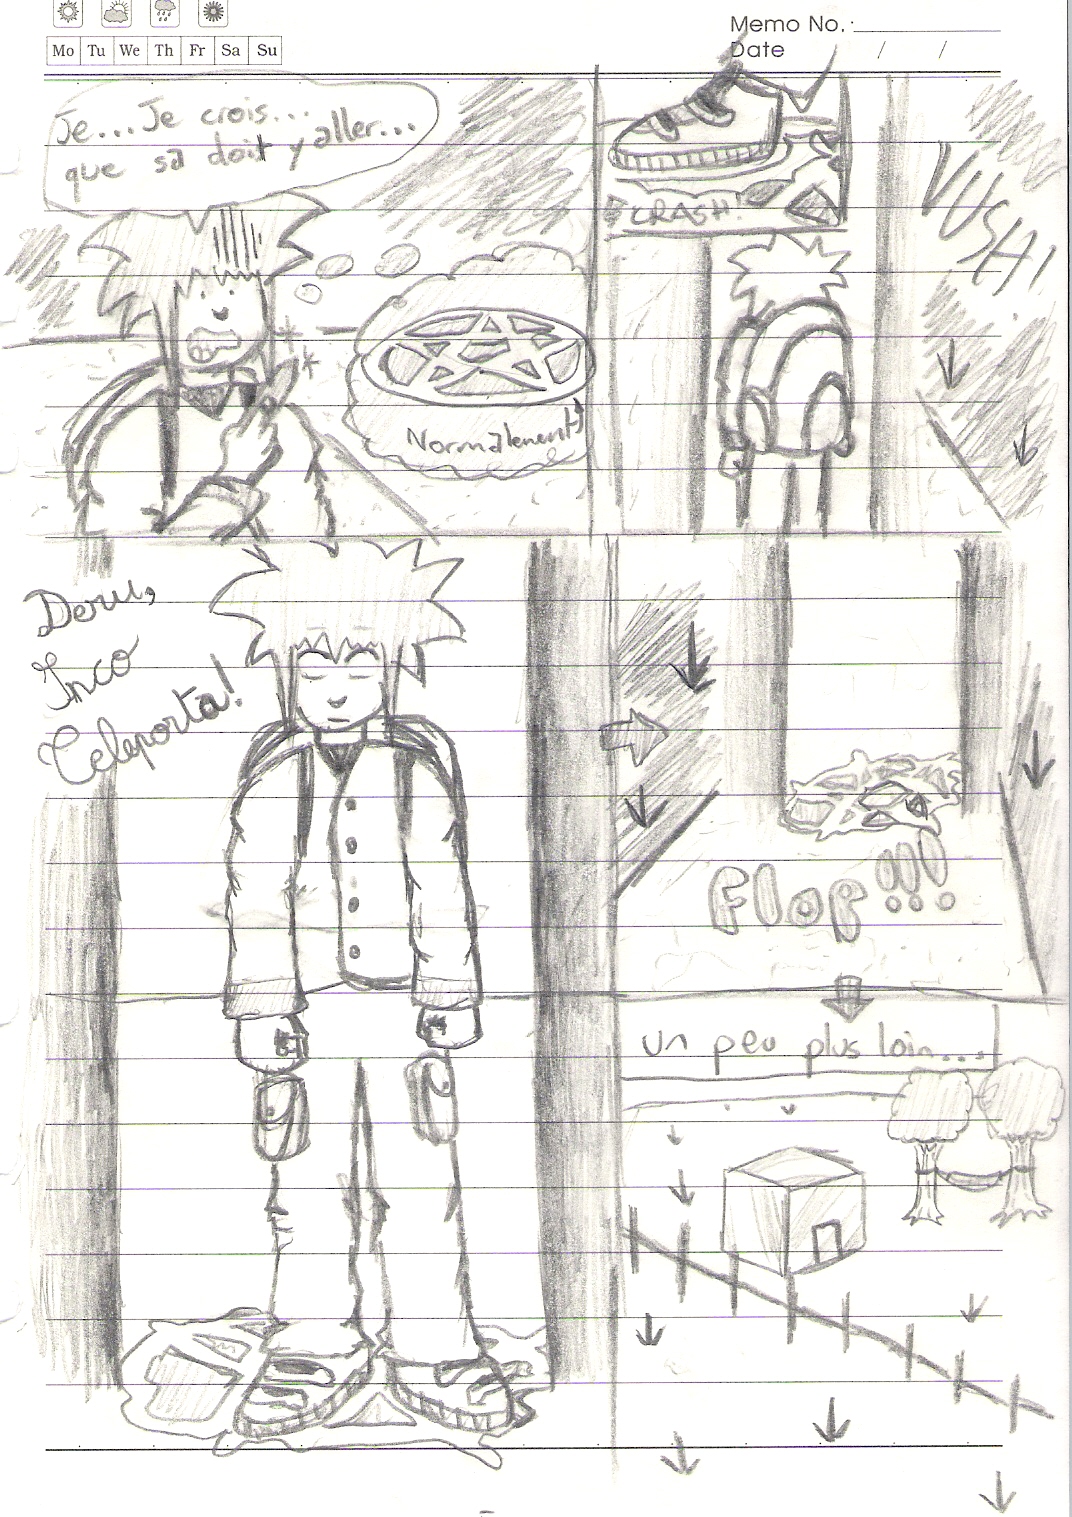 Memo No.:
Mo Tu We Th Fr Sa Su
Date / /
Je...Je crois...
que sa doit y aller...
Normalement
CRASH!
VUSH!
Deru,
Inco
Teleporta!
Flop!!!
un peu plus loin...